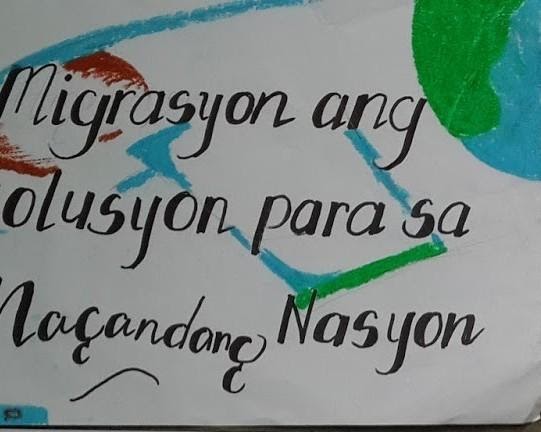 Migrasyon ang
olusyon para sa
Magandang Nasyon